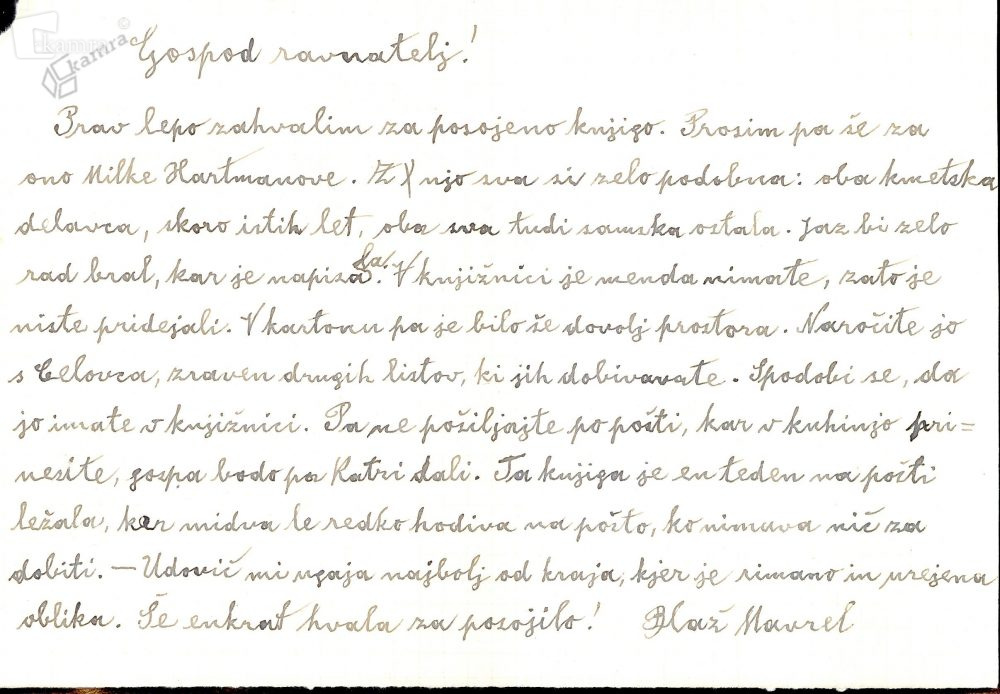 kamra
kamra ©
Gospod ravnatelj!
Prav lepo zahvalim za posojeno knjigo. Prosim pa še za
ono Milke Hartmanove. Z njo sva si zelo podobna: oba kmetska
delavca, skoro istih let, oba sva tudi samska ostala. Jaz bi zelo
rad bral, kar je napisala. V knjižnici je menda nimate, zato je
niste pridejali. V kartonu pa je bilo še dovolj prostora. Naročite jo
s Celovca, zraven drugih listov, ki jih dobivavate. Spodobi se, da
jo imate v knjižnici. Pa ne pošiljajte po pošti, kar v kuhinjo pri=
nesite, gospa bodo pa Katri dali. Ta knjiga je en teden na pošti
ležala, ker midva le redko hodiva na pošto, ko nimava nič za
dobiti. — Udovič mi ugaja najbolj od kraja, kjer je rimano in urejena
oblika. Še enkrat hvala za posojilo! Blaž Mavrel